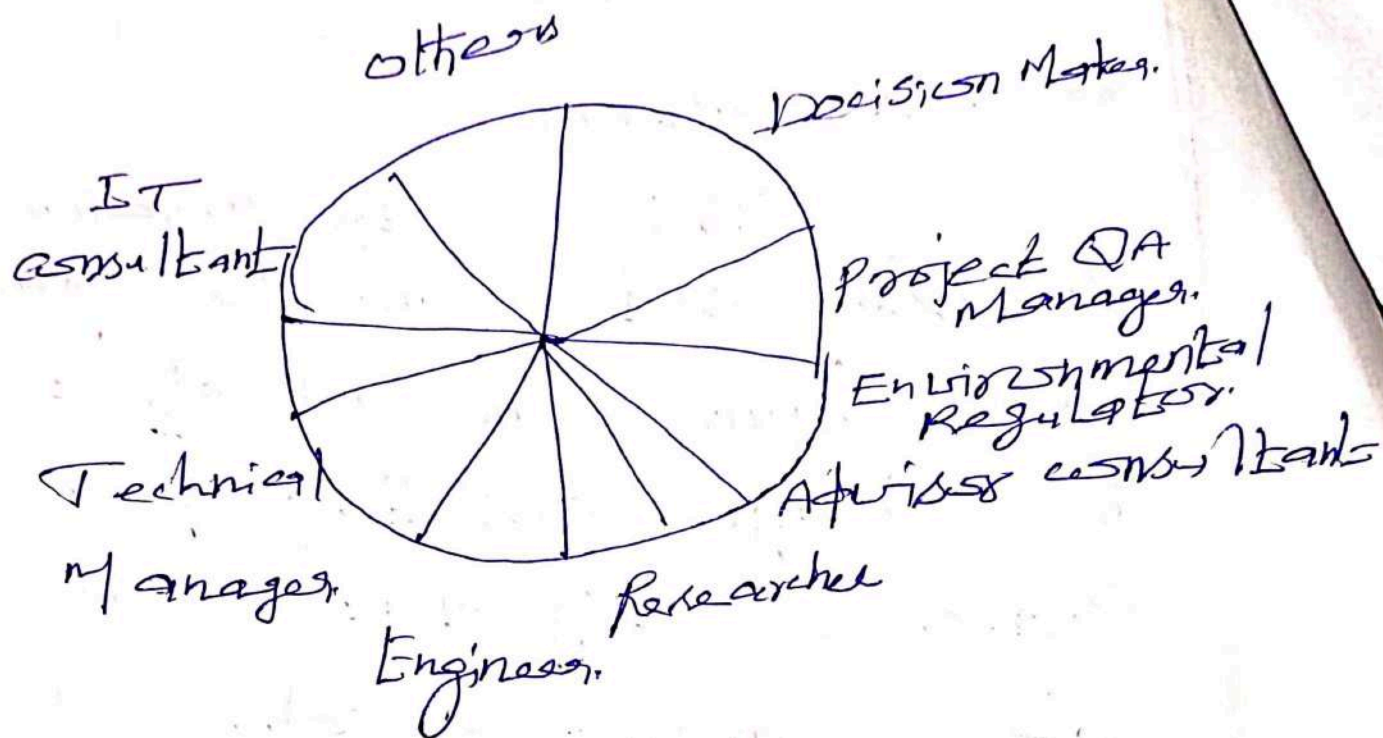 others
Decision Maker.
IT
consultant
Project QA
Manager.
Environmental
Regulator.
Advisor consultant
Technical
Manager.
Researcher
Engineer.